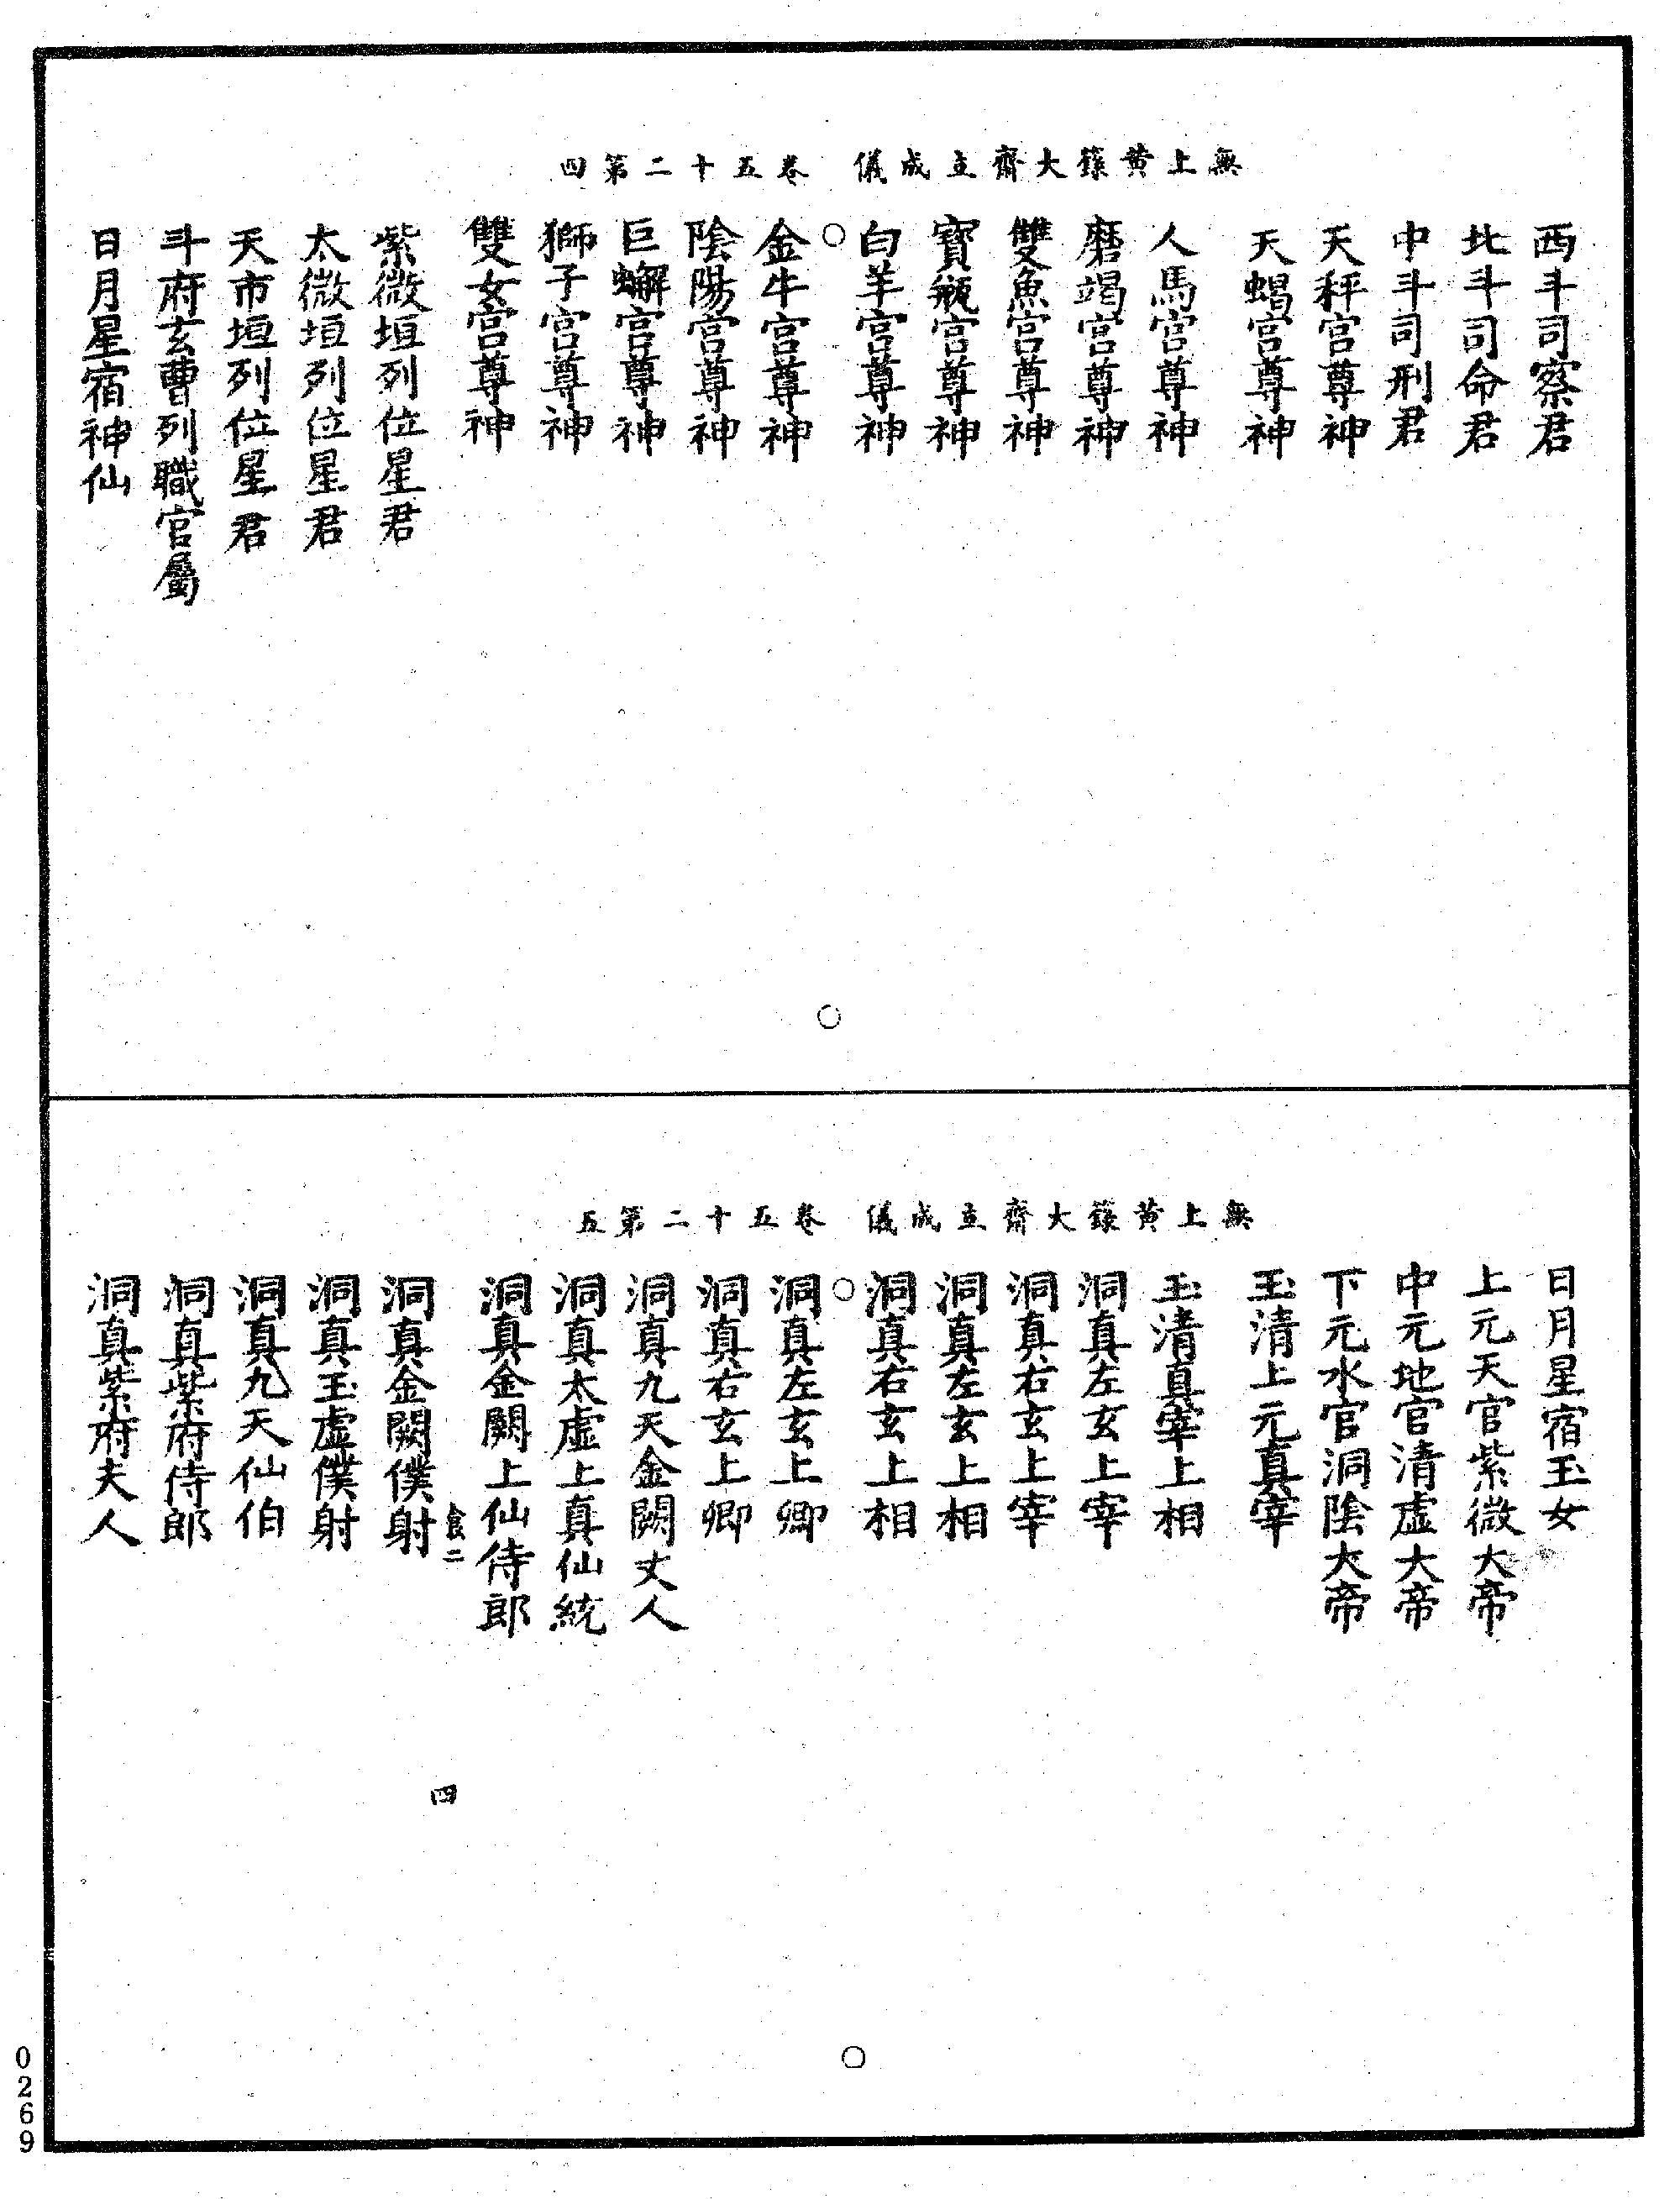 無上黃籙大齋立成儀 卷五十二第四
西斗司察君
北斗司命君
中斗司刑君
天秤宮尊神
天蝎宮尊神
人馬宮尊神
磨竭宮尊神
雙魚宮尊神
寶瓶宮尊神
白羊宮尊神
金牛宮尊神
陰陽宮尊神
巨蠏宮尊神
獅子宮尊神
雙女宮尊神
紫微垣列位星君
太微垣列位星君
天市垣列位星君
斗府玄曹列職官屬
日月星宿神仙
無上黃籙大齋立成儀 卷五十二第五
日月星宿玉女
上元天官紫微大帝
中元地官清虛大帝
下元水官洞陰大帝
玉清上元真宰
玉清真宰上相
洞真左玄上宰
洞真右玄上宰
洞真左玄上相
洞真右玄上相
洞真左玄上卿
洞真右玄上卿
洞真九天金闕丈人
洞真太虛上真仙統
洞真金闕上仙侍郎
食二
四
洞真金闕僕射
洞真玉虛僕射
洞真九天仙伯
洞真紫府侍郎
洞真紫府夫人
0269